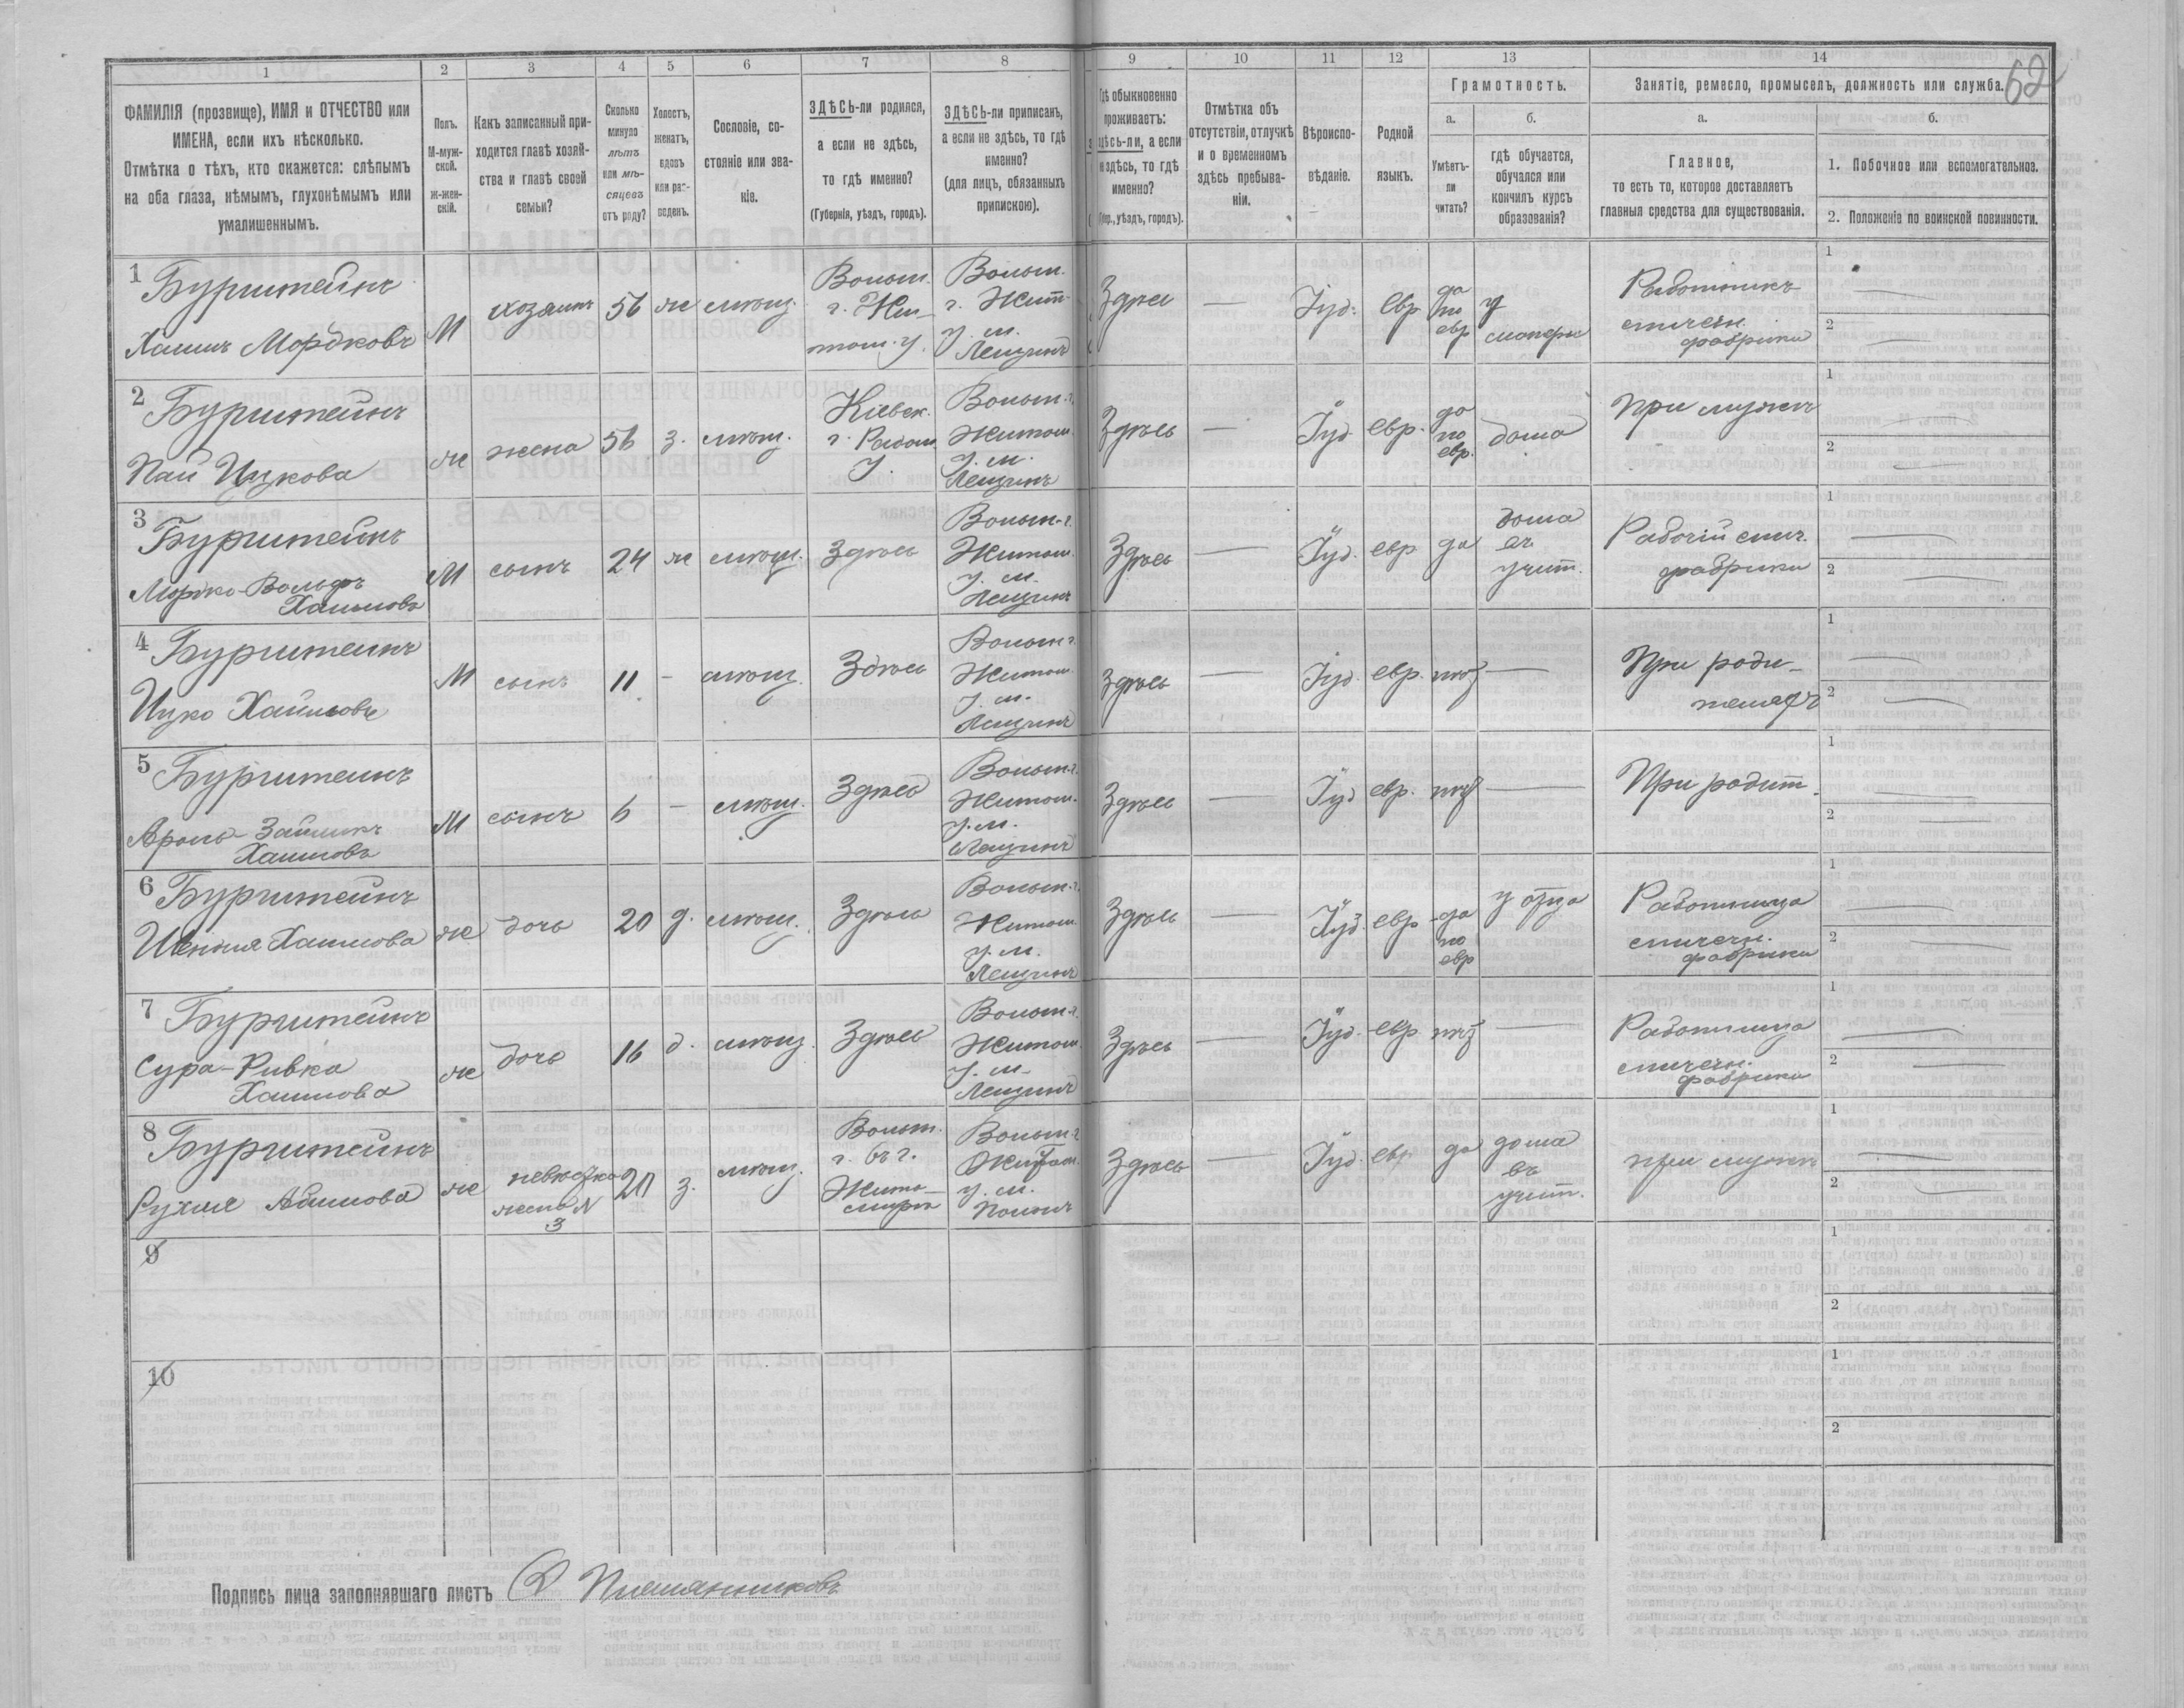 1 2 3 4 5 6 7 8 9 10 11 12 13 14
62
ФАМИЛІЯ (прозвище), ИМЯ и ОТЧЕСТВО или
ИМЕНА, если ихъ нѣсколько.
Отмѣтка о тѣхъ, кто окажется: слѣпымъ
на оба глаза, нѣмымъ, глухонѣмымъ или
умалишеннымъ.
Полъ.
М-муж-
ской.
ж-жен-
скій.
Какъ записанный при-
ходится главѣ хозяй-
ства и главѣ своей
семьи?
Сколько
минуло
лѣтъ
или мѣ-
сяцевъ
отъ роду?
Холостъ,
женатъ,
вдовъ
или раз-
веденъ.
Сословіе, со-
стояніе или зва-
ніе.
ЗДѢСЬ-ли родился,
а если не здѣсь,
то гдѣ именно?
(Губернія, уѣздъ, городъ).
ЗДѢСЬ-ли приписанъ,
а если не здѣсь, то гдѣ
именно?
(для лицъ, обязанныхъ
припискою).
Гдѣ обыкновенно
проживаетъ:
здѣсь-ли, а если
не здѣсь, то гдѣ
именно?
(Губ., уѣздъ, городъ).
Отмѣтка объ
отсутствіи, отлучкѣ
и о временномъ
здѣсь пребыва-
ніи.
Вѣроиспо-
вѣданіе.
Родной
языкъ.
Грамотность.
а.
Умѣетъ-
ли
читать?
б.
гдѣ обучается,
обучался или
кончилъ курсъ
образованія?
Занятіе, ремесло, промыселъ, должность или служба.
а.
Главное,
то есть то, которое доставляетъ
главныя средства для существованія.
б.
1. Побочное или вспомогательное.
2. Положеніе по воинской повинности.
1 Бурштейнъ
Хаимъ Мордковъ
М
хозяинъ
56
ж
мѣщ.
Волын.
г. Жи-
том. у.
Волын.
г. Жит.
у. м.
Лещинъ
Здѣсь
—
Іуд.
евр
да
по
евр
у
Работникъ
спичечн.
фабрики
1 —
2 —
2 Бурштейнъ
Ицкова
ж
жена
56
з.
мѣщ.
Кіевск.
г. Радом.
у.
Волын. г.
Житом.
у. м.
Лещинъ
Здѣсь
—
Іуд
евр.
да
по
евр.
дома
при мужѣ
1
2 —
3 Бурштейнъ
Мордко-Вольфъ
Хаимовъ
М
сынъ
24
ж
мѣщ.
Здѣсь
Волын. г.
Житом.
у. м.
Лещинъ
Здѣсь
—
Іуд.
евр
да
дома
съ
учит.
Рабочій спич.
фабрики
1
2 —
4 Бурштейнъ
Ицко Хаимовъ
М
сынъ
11
-
мѣщ.
Здѣсь
Волын г.
Житом.
у. м.
Лещинъ
Здѣсь
—
Іуд.
евр.
нѣт
—
При роди-
теляхъ
1 —
2 —
5 Бурштейнъ
Хаимовъ
М
сынъ
6
-
мѣщ.
Здѣсь
Волын. г.
Житом.
у. м.
Лещинъ
Здѣсь
—
Іуд
евр.
нѣт
—
При родит.
1 —
2 —
6 Бурштейнъ
Хаимова
ж
дочь
20
д.
мѣщ.
Здѣсь
Волын. г.
Житом.
у. м.
Лещинъ
Здѣсь
—
Іуд.
евр
да
по
евр
у отца
Работница
спичечн.
фабрики
1 —
2 —
7 Бурштейнъ
Сура-Ривка
Хаимова
ж
дочь
16
д.
мѣщ.
Здѣсь
Волын. г.
Житом.
у. м.
Лещинъ
Здѣсь
—
Іуд.
евр
нѣт
—
Работница
спичечн.
фабрики
1 —
2 —
8 Бурштейнъ
Рухля
ж
невѣстка
жена N
3
20
з.
мѣщ.
Волын.
г. въ г.
Жито-
мирѣ
Волын г
Житом.
у. м.
Здѣсь
—
Іуд.
евр.
да
дома
съ
учит.
при мужѣ
1 —
2 —
9
1
2
10
1
2
Подпись лица заполнявшаго листъ Племянниковъ